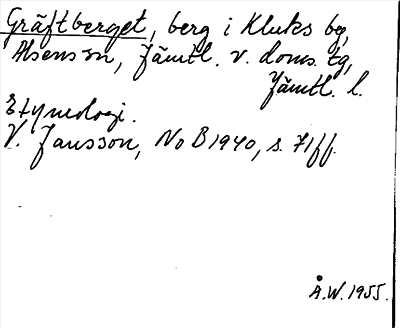 Gräftberget, berg i Kluks by,
Alsens sn, Jämtl. v. doms. tg,
Jämtl. l.
Etymologi.
V. Jansson, NoB 1940, s. 71 ff.
Å.W. 1955.